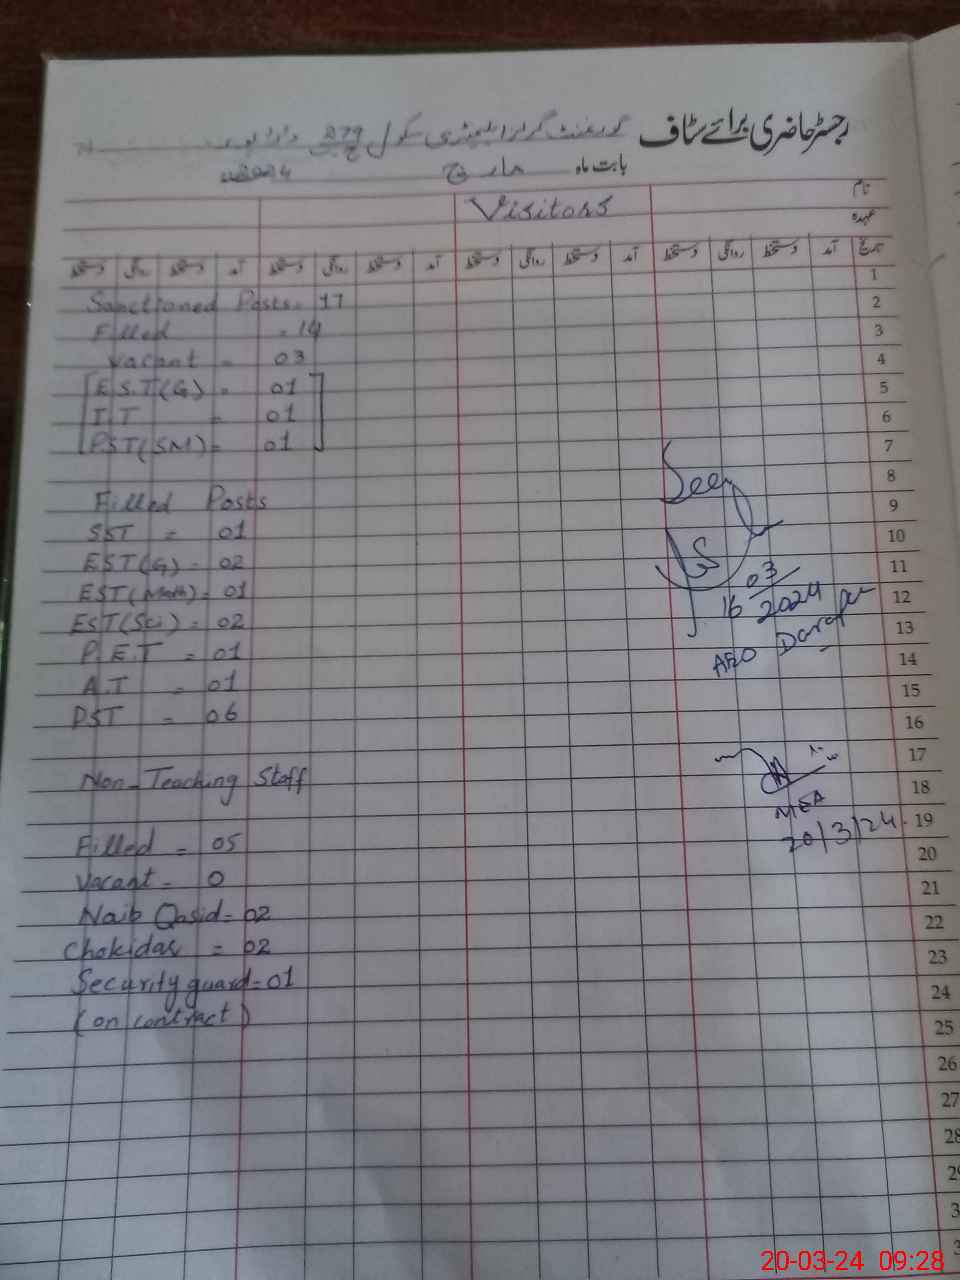 رجسٹر حاضری برائے سٹاف گورنمنٹ گرلز ایلیمنٹری سکول 279 ج ب
بابت ماہ مارچ
نام
عہدہ
Visitors
تاریخ آمد دستخط روانگی دستخط آمد دستخط روانگی دستخط آمد دستخط روانگی دستخط آمد دستخط روانگی دستخط
1
Sanctioned Posts = 17 2
Filled = 14 3
Vacant = 03 4
E.S.T(G) = 01 5
I T = 01 6
PST(SM) = 01 7
8
Filled Posts 9
SST = 01 10
EST(G) = 02 11
EST(Math) = 01 12
EST(Sci) = 02 13
P.E.T = 01 14
A.T = 01 15
PST = 06 16
17
Non-Teaching Staff 18
19
Filled = 05 20
Vacant = 0 21
Naib Qasid = 02 22
Chokidar = 02 23
Security guard = 01 24
(on contract) 25
26
27
28
Seen
16/03/2024
AEO Darapur
MEA
20/3/24
20-03-24 09:28